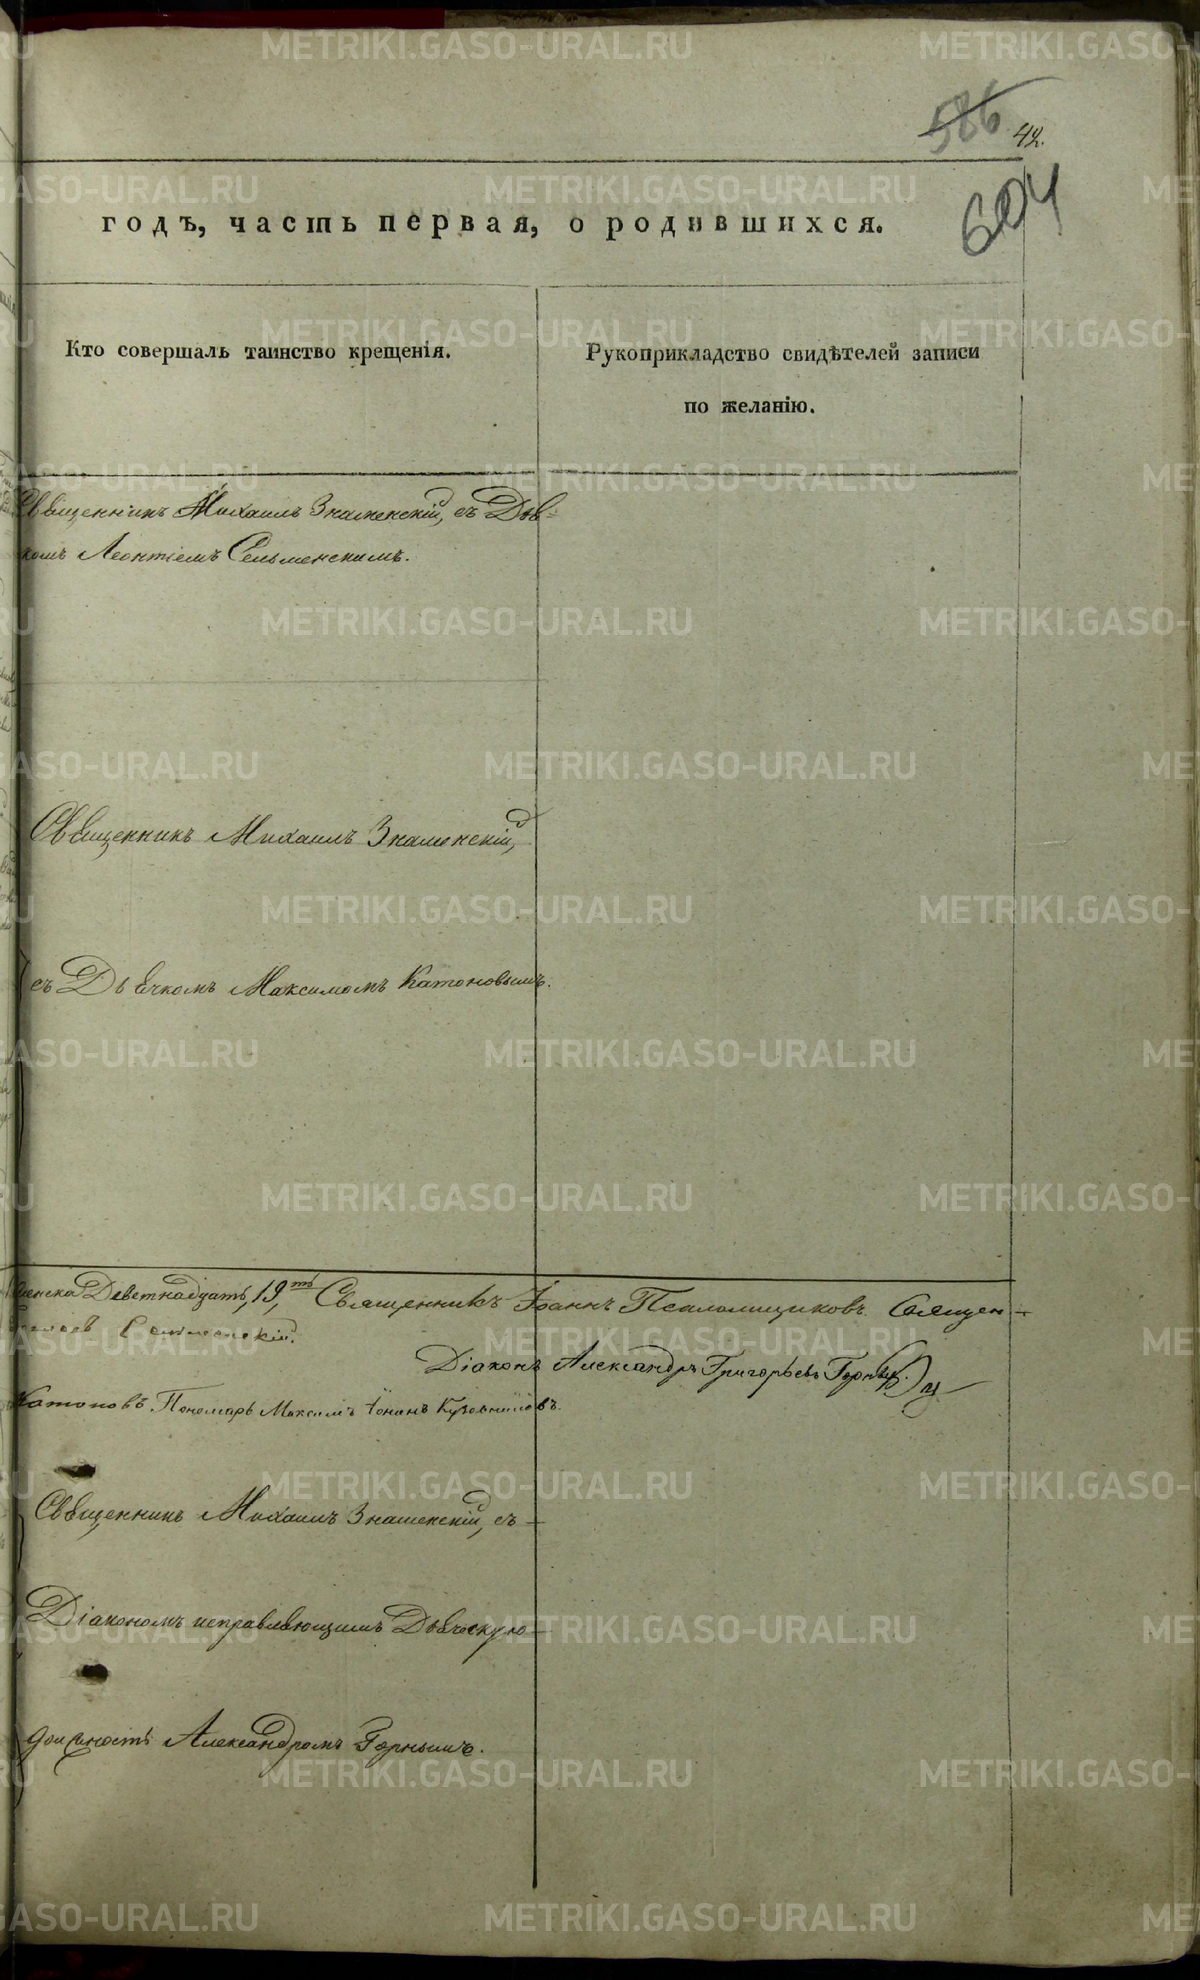 586 42.
604
годъ, часть первая, о родившихся.
Кто совершалъ таинство крещенія.
Рукоприкладство свидѣтелей записи
по желанію.
Священникъ Михаилъ Знаменскій, съ Дьяч=
комъ Леонтіемъ Сельменскимъ.
Священникъ Михаилъ Знаменскій,
съ Дьячкомъ Максимомъ Катоновымъ.
Деветнадцать, 19, Священникъ Іоаннъ Псаломщиковъ. Священ-
Діаконъ Александръ Григорьевъ Горныхъ.
Катоновъ. Пономарь Максимъ Іонинъ
Священникъ Михаилъ Знаменскій, съ
Діакономъ исправляющимъ Дьяческую
должность Александромъ Горнымъ.
METRIKI.GASO-URAL.RU